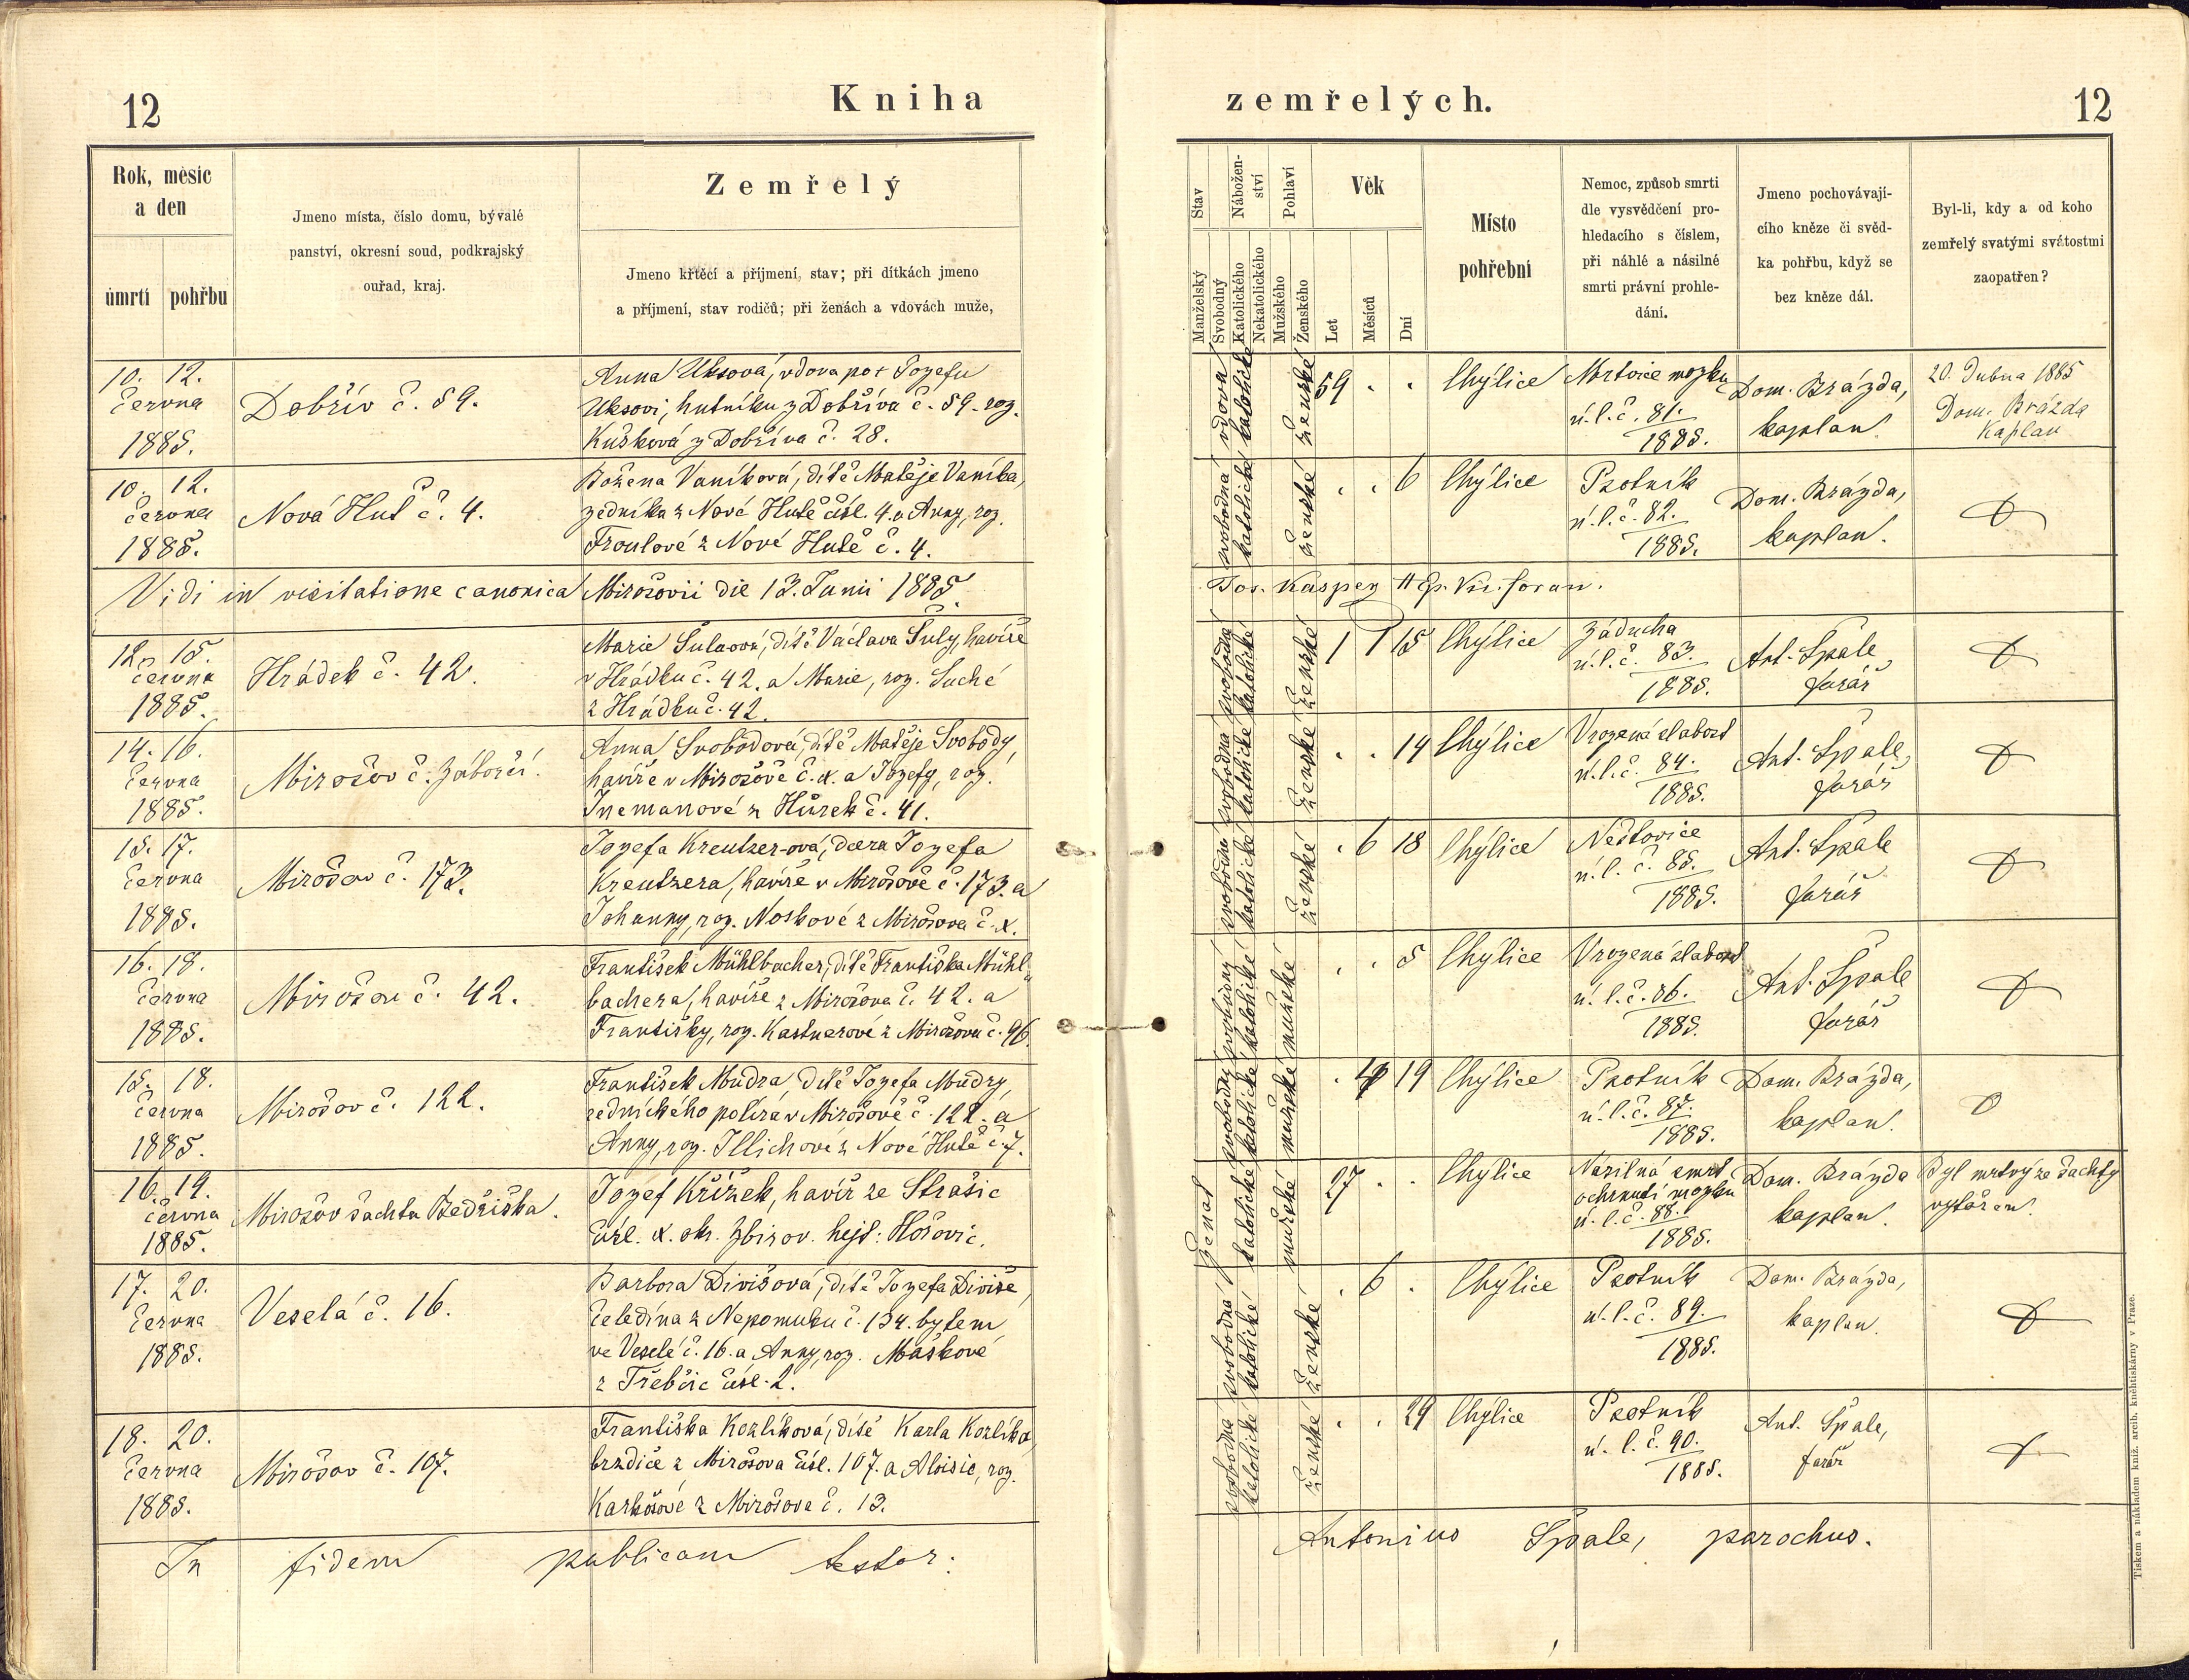 12
Kniha
zemřelých.
12
Rok, měsíc
a den
úmrtí
pohřbu
Jmeno místa, číslo domu, bývalé
panství, okresní soud, podkrajský
ouřad, kraj.
Zemřelý
Jmeno křtěcí a příjmení, stav; při dítkách jmeno
a příjmení, stav rodičů; při ženách a vdovách muže,
Stav
Nábožen-
ství
Pohlaví
Věk
Manželský
Svobodný
Katolického
Nekatolického
Mužského
Ženského
Let
Měsíců
Dní
Místo
pohřební
Nemoc, způsob smrti
dle vysvědčení pro-
hledacího s číslem,
při náhlé a násilné
smrti právní prohle-
dání.
Jmeno pochovávají-
cího kněze či svěd-
ka pohřbu, když se
bez kněze dál.
Byl-li, kdy a od koho
zemřelý svatými svátostmi
zaopatřen?
10. 12.
června
1885.
Dobřív č. 59.
Anna Uksová, vdova po † Jozefu
Uksovi, hutníku z Dobříva č. 59. roz.
Kušková z Dobříva č. 28.
vdova
katolické
ženské
59 . .
Chýlice
Mrtvice mozku
ú. l. č. 81.
1885.
Dom. Brázda,
kaplan
20. Dubna 1885
Dom. Brázda
Kaplan
10. 12.
června
1885.
Nová Huť č. 4.
Božena Vaníková, dítě Matěje Vaníka,
zedníka z Nové Hutě čísl. 4. a Anny, roz.
Troulové z Nové Hutě č. 4.
svobodná
katolické
ženské
. . 6
Chýlice
Psotník
ú. l. č. 82.
1885.
Dom. Brázda,
kaplan.
Vidi in visitatione canonica Mirošovii die 13. Junii 1885.
Jos. Kaspey Ep. Vic. foran.
12. 15.
června
1885.
Hrádek č. 42.
Marie Šulcová, dítě Václava Šuly, havíře
v Hrádku č. 42. a Marie, roz. Suché
z Hrádku č. 42.
svobodná
katolické
ženské
1 1 15
Chýlice
Záducha
ú. l. č. 83.
1885.
Ant. Špale
farář
14. 16.
června
1885.
Mirošov č. Záboří.
Anna Svobodová, dítě Matěje Svobody,
havíře v Mirošově č. x. a Jozefy, roz.
Jnemanové z Hůrek č. 41.
svobodná
katolické
ženské
. . 14
Chýlice
Vrozená slabost
ú. l. č. 84.
1885.
Ant. Špale,
farář
15. 17.
června
1885.
Mirošov č. 173.
Jozefa Kreutzer-ová, dcera Jozefa
Kreutzera, havíře v Mirošově č. 173. a
Johanny, roz. Noskové z Mirošova č. x.
svobodná
katolické
ženské
. 6 18
Chýlice
Neštovice
ú. l. č. 85.
1885.
Ant. Špale
farář
16. 18.
června
1885.
Mirošov č. 42.
František Mühlbacher, dítě Františka Mühl-
bachera, havíře z Mirošova č. 42. a
Františky, roz. Kastnerové z Mirošova č. 96.
svobodný
katolické
mužské
. . 5
Chýlice
Vrozená slabost
ú. l. č. 86.
1885.
Ant. Špale
farář
15. 18.
června
1885.
Mirošov č. 122.
František Mudra, dítě Jozefa Mudry,
zednického políra v Mirošově č. 122. a
Anny, roz. Illichové z Nové Hutě č. 7.
svobodný
katolické
mužské
19
Chýlice
Psotník
ú. l. č. 87.
1885.
Dom. Brázda,
kaplan.
16. 19.
června
1885.
Mirošov šachta Bedřiška.
Jozef Křížek, havíř ze Strašic
čísl. x. okr. Zbirov. hejt: Hořovic.
ženat
katolické
mužské
27 . .
Chýlice
Násilná smrt
ochrnutí mozku
ú. l. č. 88.
1885.
Dom. Brázda
kaplan.
Byl mrtvý ze šachty
vytážen.
17. 20.
června
1885.
Veselá č. 16.
Barbora Divišová, dítě Jozefa Diviše,
čeledína z Nepomuku č. 134. bytem
ve Veselé č. 16. a Anny, roz. Maškové
z Třebčic čísl. 2.
svobodná
katolické
ženské
. 6 .
Chýlice
Psotník
ú. l. č. 89.
1885.
Dom. Brázda,
kaplan.
18. 20.
června
1885.
Mirošov č. 107.
Františka Kozlíková, dítě Karla Kozlíka,
brzdiče z Mirošova čísl. 107. a Aloisie, roz.
Karbošové z Mirošova č. 13.
svobodná
katolické
ženské
. . 29
Chýlice
Psotník
ú. l. č. 90.
1885.
Ant. Špale,
farář
In fidem publicam testor:
Antonius Špale, parochus.
Tiskem a nákladem kníž. arcib. knihtiskárny v Praze.